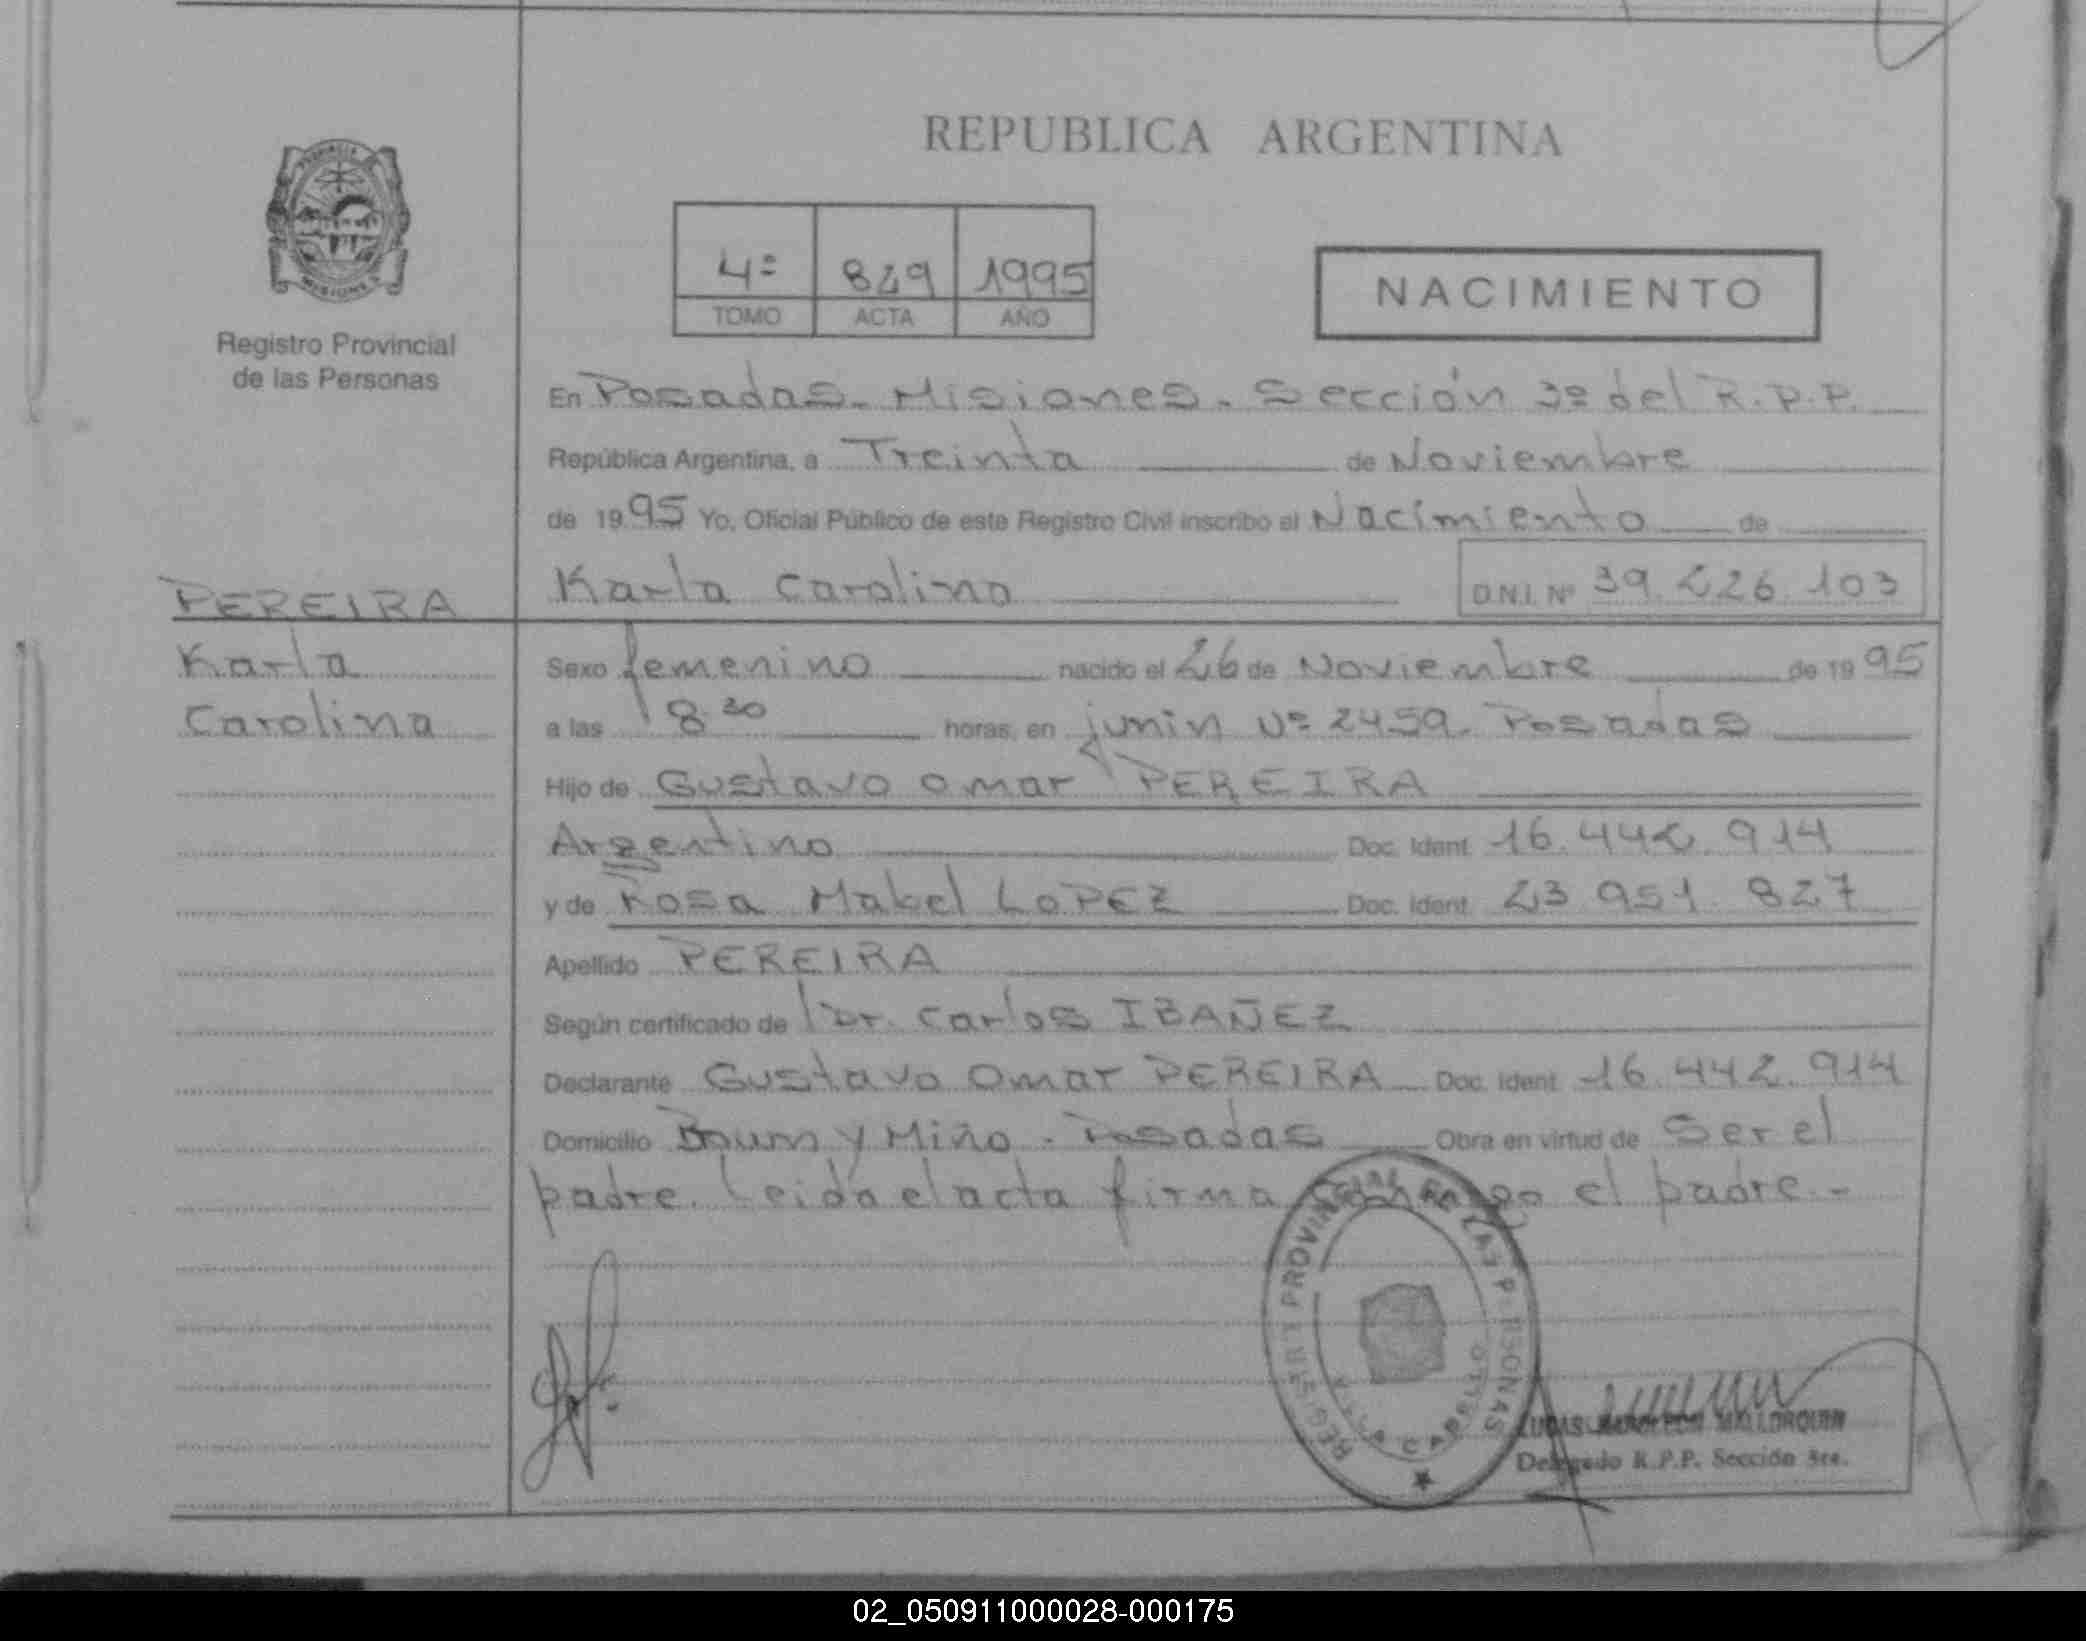 REPUBLICA ARGENTINA
PROVINCIA
MISIONES
Registro Provincial
de las Personas
4º 829 1995
TOMO ACTA AÑO
NACIMIENTO
En Posadas - Misiones - Sección 3º del R.P.P.
República Argentina, a Treinta de Noviembre
de 1995 Yo, Oficial Público de este Registro Civil inscribo el Nacimiento de
Karla Carolina D.N.I. Nº 39.226.103
PEREIRA
Karla
Carolina
Sexo femenino nacido el 26 de Noviembre de 1995
a las 8.30 horas, en junin Nº 2459. Posadas
Hijo de Gustavo Omar PEREIRA
Argentino Doc. Ident. 16.442.914
y de Rosa Mabel LOPEZ Doc. Ident. 23.951.827
Apellido PEREIRA
Según certificado de Dr. Carlos IBAÑEZ
Declarante Gustavo Omar PEREIRA Doc. Ident. 16.442.914
Domicilio y Miño - Posadas Obra en virtud de Ser el
padre. Leida el acta firma el padre.-
REGISTRO PROVINCIAL DE LAS PERSONAS
LUCAS MALLORQUIN
Delegado R.P.P. Sección 3ra.
02_050911000028-000175